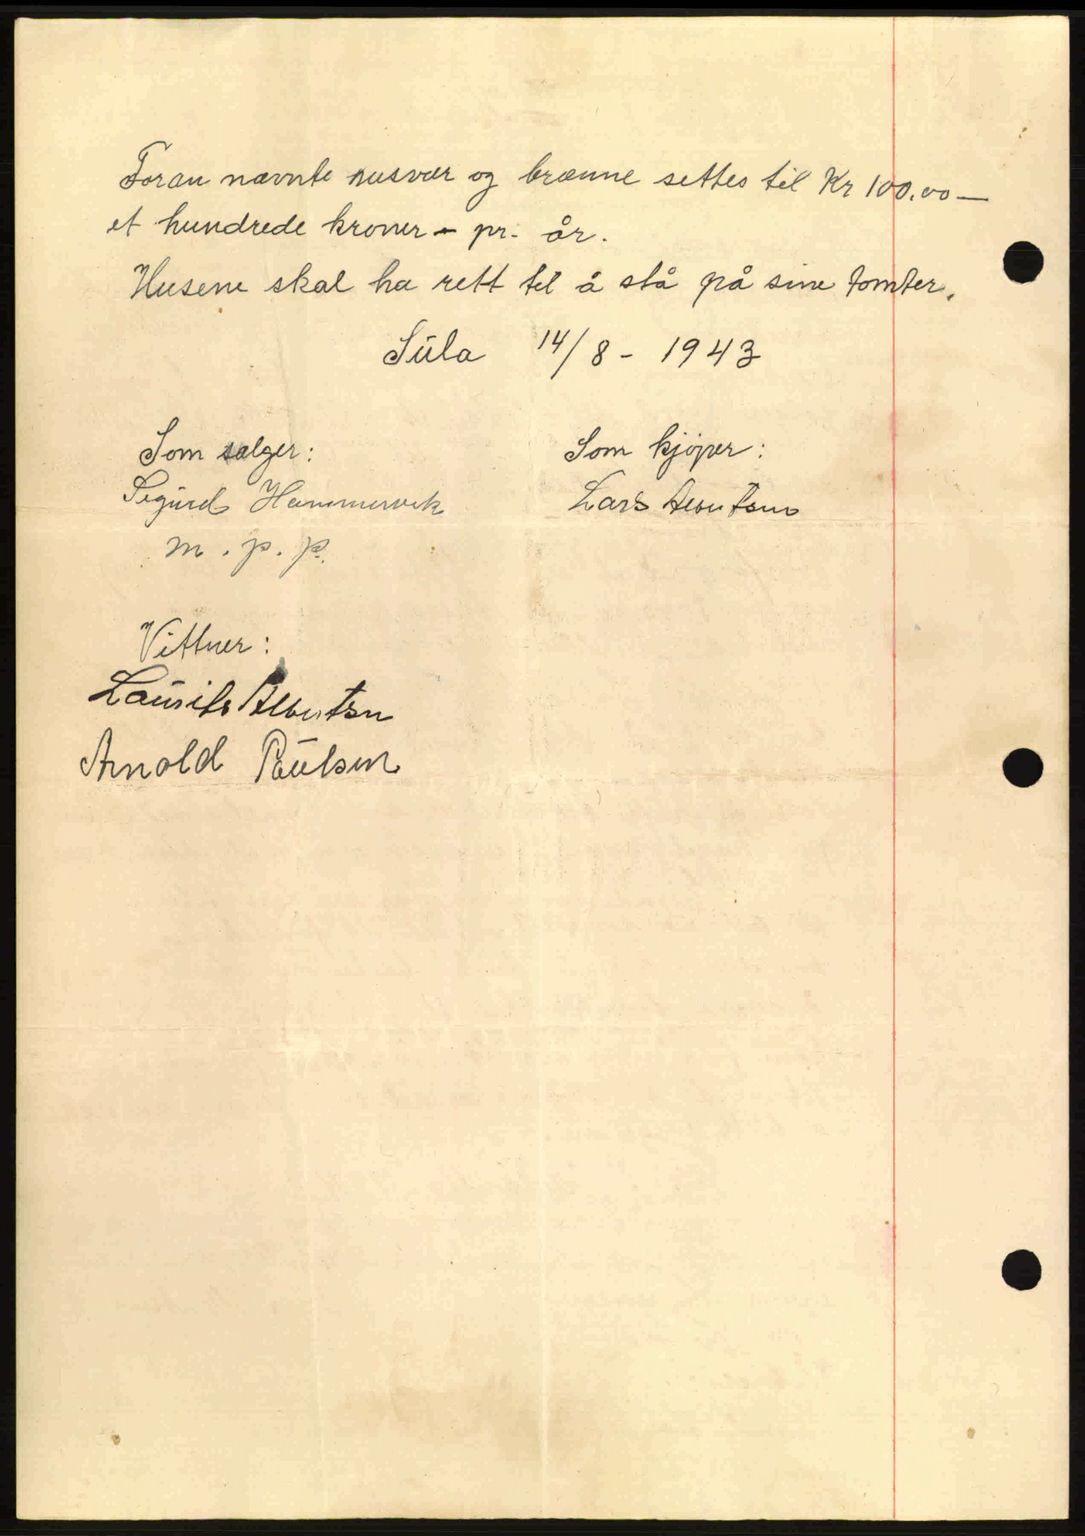 Foran nævnte husvær og brænne settes til Kr 100.00 —
et hundrede kroner - pr. år.
Husene skal ha rett til å stå på sine tomter.
Sula 14/8 - 1943
Som sælger: Som kjøper:
Sigurd Hammervik Lars Albertsen
m. p. p.
Vittner:
Laurits Albertsen
Arnold Paulsen